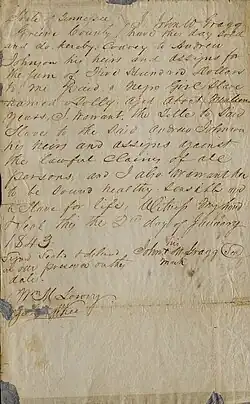 State of Tennessee
Greene County I John W Gragg
have this day sold
and do hereby Convey to Andrew
Johnson his heirs and assigns for
the sum of Five Hundred Dollars
to me Paid a Negro Girl Slave
named Dolly, aged about
years, I warant, the title to Said
Slave to the Said Andrew Johnson
his heirs and assigns against
the lawful claims of all
persons, and I also warant her
to be sound healthy Sensible and
a Slave for life, Witness my hand
& Seal this the 2nd day of January
1843
his
John W Gragg Seal
mark
Signed Sealed & delivered
in our presence on the
date
W M Lowry